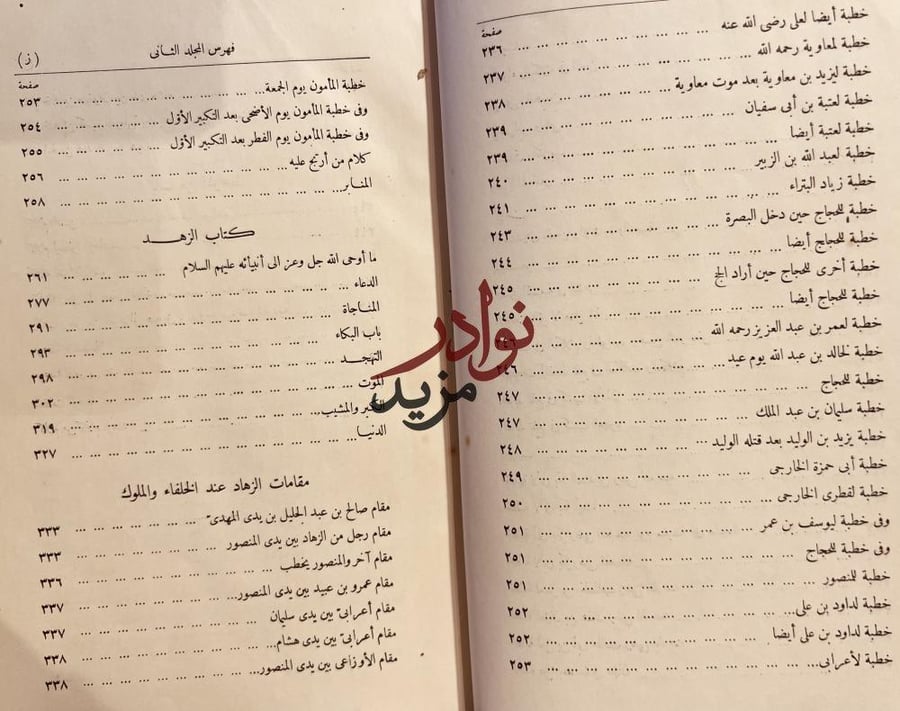 صفحة
خطبة أيضا لعلى رضى الله عنه ... ٢٣٦
خطبة لمعاوية رحمه الله ... ٢٣٧
خطبة ليزيد بن معاوية بعد موت معاوية ... ٢٣٨
خطبة لعتبة بن أبى سفيان ... ٢٣٩
خطبة لعتبة أيضا ... ٢٣٩
خطبة لعبد الله بن الزبير ... ٢٤٠
خطبة زياد البتراء ... ٢٤١
خطبة للحجاج حين دخل البصرة ... ٢٤٣
خطبة للحجاج أيضا ... ٢٤٤
خطبة أخرى للحجاج حين أراد الحج ... ٢٤٥
خطبة للحجاج أيضا ... ٢٤٥
خطبة لعمر بن عبد العزيز رحمه الله ... ٢٤٦
خطبة لخالد بن عبد الله يوم عيد ... ٢٤٦
خطبة للحجاج ... ٢٤٧
خطبة سليمان بن عبد الملك ... ٢٤٧
خطبة يزيد بن الوليد بعد قتله الوليد ... ٢٤٨
خطبة أبى حمزة الخارجى ... ٢٤٩
خطبة لقطرى الخارجى ... ٢٥٠
وفى خطبة ليوسف بن عمر ... ٢٥١
وفى خطبة للحجاج ... ٢٥١
خطبة للمنصور ... ٢٥١
خطبة لداود بن على ... ٢٥٢
خطبة لداود بن على أيضا ... ٢٥٢
خطبة لأعرابى ... ٢٥٣
فهرس المجلد الثانى (ز)
صفحة
خطبة المأمون يوم الجمعة ... ٢٥٣
وفى خطبة المأمون يوم الأضحى بعد التكبير الأوّل ... ٢٥٤
وفى خطبة المأمون يوم الفطر بعد التكبير الأوّل ... ٢٥٥
كلام من أرتج عليه ... ٢٥٦
المنابر ... ٢٥٨
كتاب الزهد
ما أوحى الله جل وعز الى أنبيائه عليهم السلام ... ٢٦١
الدعاء ... ٢٧٧
المناجاة ... ٢٩١
باب البكاء ... ٢٩٣
التهجد ... ٢٩٨
الموت ... ٣٠٢
الكبر والمشيب ... ٣١٩
الدنيا ... ٣٢٧
مقامات الزهاد عند الخلفاء والملوك
مقام صالح بن عبد الجليل بن يدى المهدىّ ... ٣٣٣
مقام رجل من الزهاد بين يدى المنصور ... ٣٣٣
مقام آخر والمنصور يخطب ... ٣٣٦
مقام عمرو بن عبيد بين يدى المنصور ... ٣٣٧
مقام أعرابىّ بين يدى سليمان ... ٣٣٧
مقام أعرابىّ بين يدى هشام ... ٣٣٨
مقام الأوزاعى بين يدى المنصور ... ٣٣٨
نوادر
مزيد